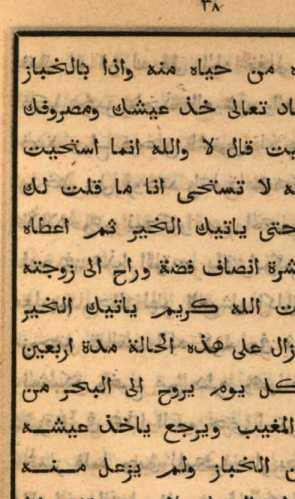 ٣٨
من حياه منه واذا بالخباز
تعالى خذ عيشك ومصروفك
قال لا والله انما استحيت
لا تستحى انا ما قلت لك
حتى ياتيك الخير ثم اعطاه
انصاف فضة وراح الى زوجته
الله كريم ياتيك الخير
على هذه الحالة مدة اربعين
كل يوم يروح الى البحر من
المغيب ويرجع ياخذ عيشه
الخباز ولم يزعل منه